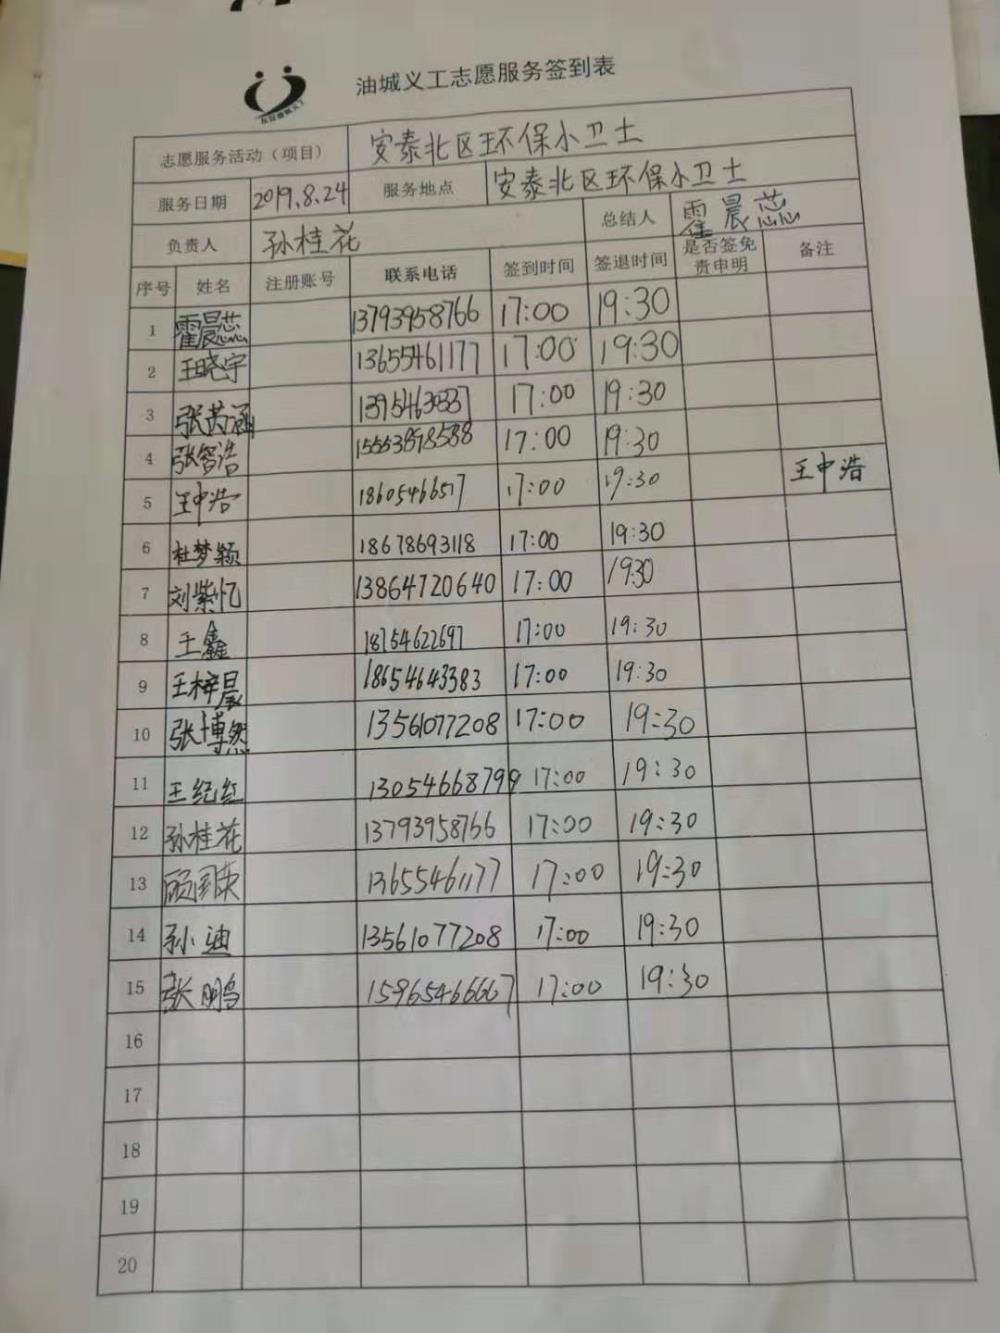 油城义工志愿服务签到表
志愿服务活动（项目） 安泰北区环保小卫士
服务日期 2019.8.24 服务地点 安泰北区环保小卫士
负责人 孙桂花 总结人 霍晨蕊
序号 姓名 注册账号 联系电话 签到时间 签退时间 是否签免责申明 备注
1 霍晨蕊 13793958766 17:00 19:30
2 王晓宇 13655461177 17:00 19:30
3 张芮涵 17:00 19:30
4 张智浩 15553878588 17:00 19:30
5 王中浩 18605466517 17:00 19:30 王中浩
6 杜梦颖 18678693118 17:00 19:30
7 刘紫忆 13864720640 17:00 19:30
8 王鑫 18754622697 17:00 19:30
9 王梓晨 18654643383 17:00 19:30
10 张博然 13561077208 17:00 19:30
11 王纪红 13054668799 17:00 19:30
12 孙桂花 13793958766 17:00 19:30
13 顾国英 13655461177 17:00 19:30
14 孙迪 13561077208 17:00 19:30
15 张鹏 15965466667 17:00 19:30
16
17
18
19
20